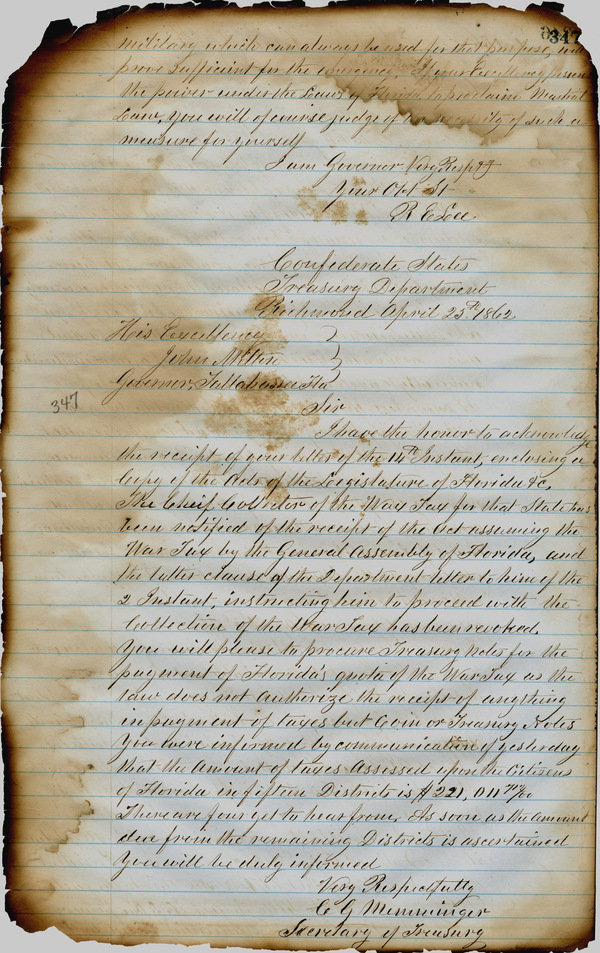 347
military which can always be used for that purpose, will
prove sufficient for the emergency. If your Excellency possess
the power under the Laws of Florida to proclaim Martial
Law, you will of course judge of the necessity of such a
measure for yourself
I am Governor Very Respty
Your Obt St
R E Lee
Confederate States
Treasury Department
Richmond April 25th 1862
His Excellency
John Milton
Governor, Tallahassee Fla
347
Sir
I have the honor to acknowledge
the receipt of your letter of the 14th Instant, enclosing a
Copy of the Acts of the Legislature of Florida &c,
The Cheif Collector of the War Tax for that State has
been notified of the receipt of the Act assuming the
War Tax by the General Assembly of Florida, and
the latter clause of the Department letter to him of the
2 Instant, instructing him to proceed with the
Collection of the War Tax has been revoked.
You will please to procure Treasury Notes for the
payment of Florida's quota of the War Tax as the
law does not authorize the receipt of anything
in payment of taxes but Coin or Treasury Notes
You were informed by communication of yesterday
that the Amount of taxes Assessed upon the Citizens
of Florida in fifteen Districts is $221,011
There are four yet to hear from. As soon as the amount
due from the remaining Districts is ascertained
You will be duly informed
Very Respectfully
C G Memminger
Secretary of Treasury